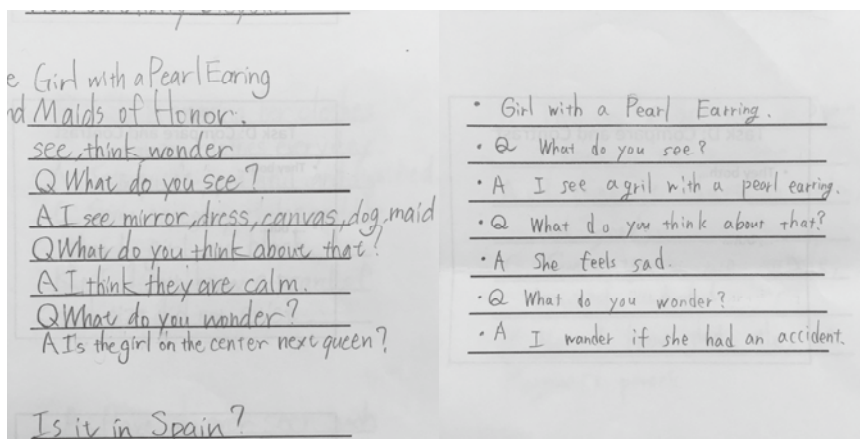 e Girl with a Pearl Earing
nd Maids of Honor.
see, think wonder
Q What do you see?
A I see mirror, dress, canvas, dog, maid
Q What do you think about that?
A I think they are calm.
Q What do you wonder?
A I's the girl on the center next queen?
Is it in Spain?
• Girl with a Pearl Earring.
• Q What do you see?
• A I see a gril with a pearl earring.
• Q What do you think about that?
• A She feels sad.
• Q What do you wonder?
• A I wander if she had an accident.